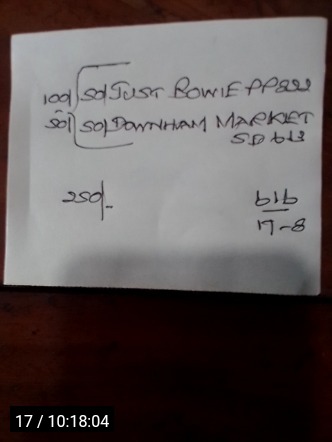 100/ 50/ JUST BOWIE PP 822
50/ 50/ DOWNHAM MARKET
SD 613
250/-
616
17-8
17 / 10:18:04